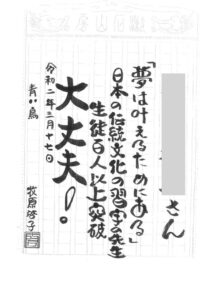 さん
「夢は叶えるためにある」
日本の伝統文化の習字の先生
生徒百人以上突破
大丈夫!
令和二年三月十七日
青い鳥
牧原啓子